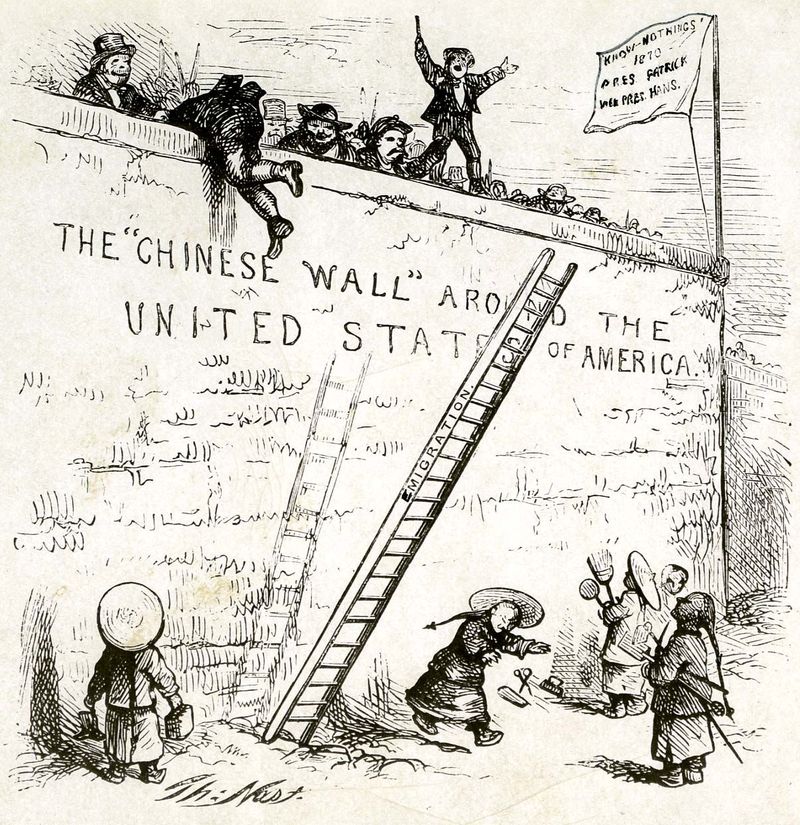 "KNOW-NOTHINGS'
1870
PRES PATRICK
VICE PRES. HANS.
THE "CHINESE WALL" AROUND THE
UNITED STATES OF AMERICA.
EMIGRATION.
Th: Nast.